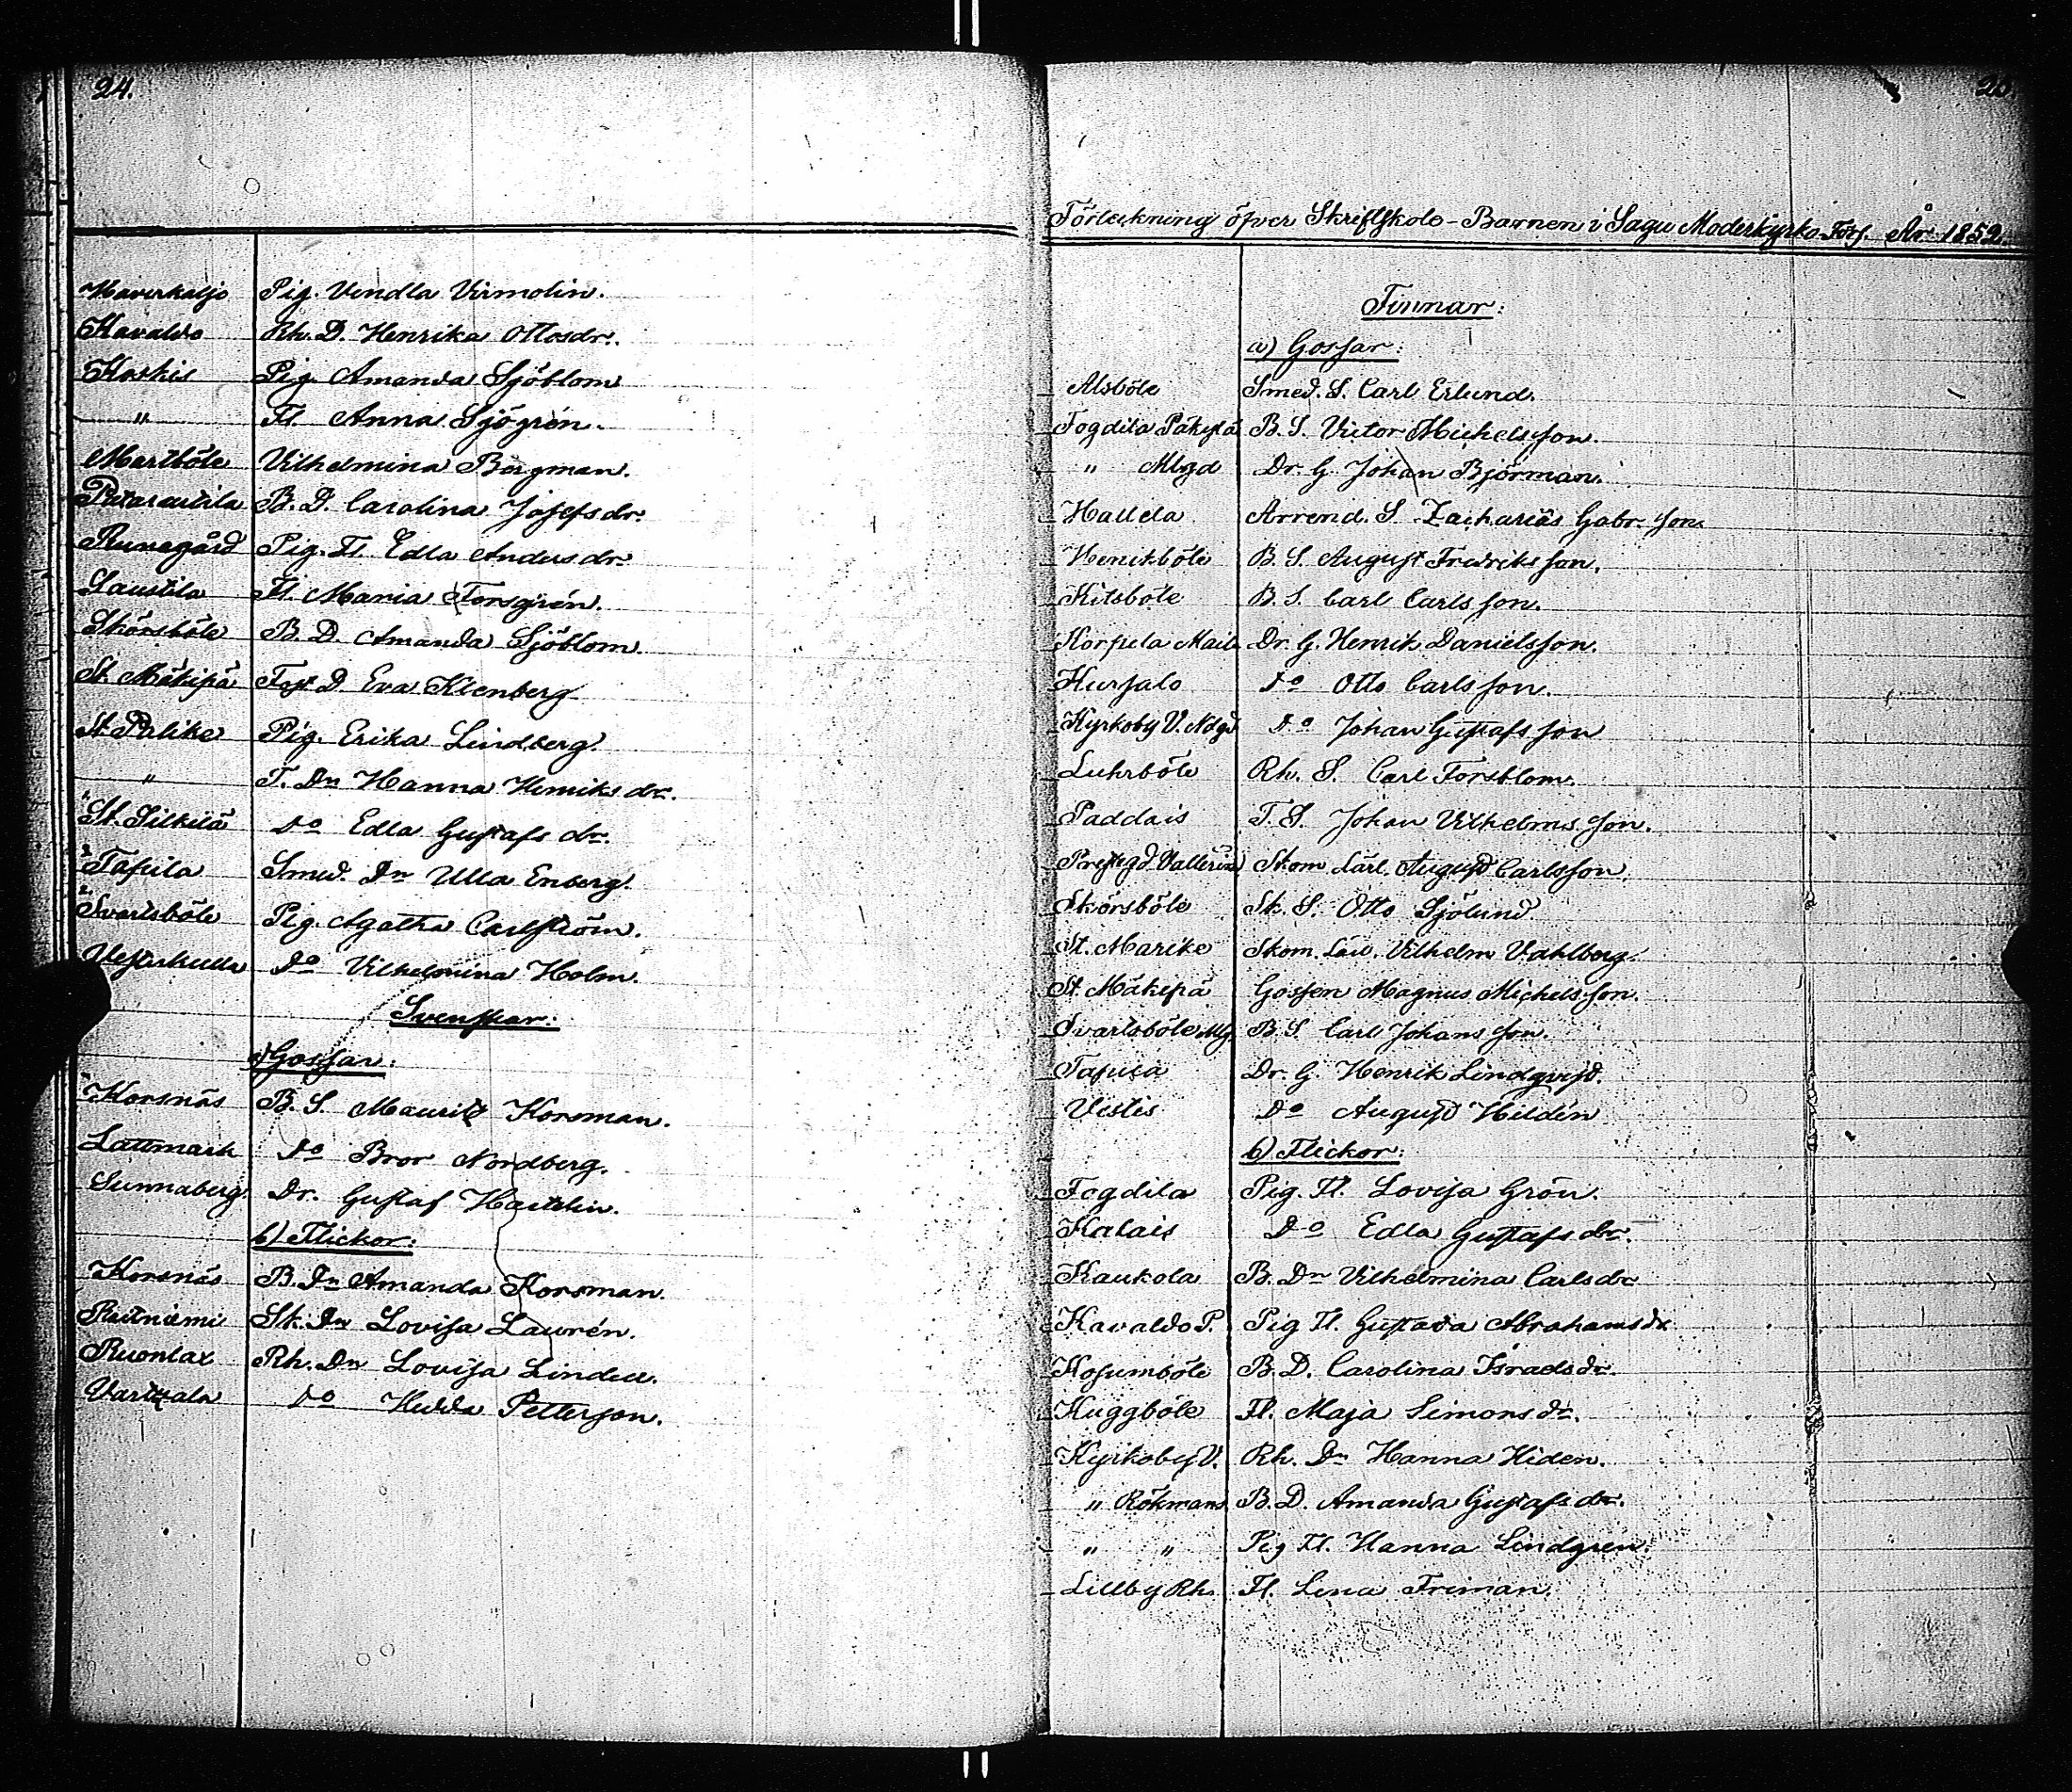 24.
Haverkaljo Pig. Vendla Virmolin.
Kavaldo Rh. D. Henrika Ottosdr.
Koskis Pig. Amanda Sjöblom
" Fl. Anna Sjögrén.
Martböle Vilhelmina Bergman.
B. D. Carolina Josefsdr.
Runagård Pig. Fl. Edla Andersdr.
Saustila Fl. Maria Forsgrén.
Skörsböle B. D. Amanda Sjöblom.
St. Mäkipä D. Eva Klenberg
St. Palike Pig. Erika Lindberg.
" T. Dn Hanna Henriksdr.
St. Silkilä Do Edla Gustafsdr.
Tapila Smed. Dn Ulla Enberg.
Svartsböle Pig. Agatha Carlström.
Vesterkulla Do Vilhelmina Holm.
Svenskar:
a) Gossar:
Korsnäs B. S. Mauritz Korsman.
Lättmark Do Bror Nordberg.
Sunnaberg. Dr. Gustaf Hartelin.
b) Flickor:
Korsnäs B. Dn Amanda Korsman.
Raitniemi Sk. Dn Lovisa Laurén.
Ruonlax Rh. Dn Lovisa Lindell.
Vartsala Do Hedda Petterson.
25.
Förteckning öfver Skriftskole-Barnen i Sagu Moderkyrko-Förs. År 1852.
Finnar:
a) Gossar:
Alsböle Smed. S. Carl Erlund.
Fogdila Päkylä B. S. Victor Michelsson.
" Mlgd Dr. G. Johan Björman.
Hallela Arrend. S. Zacharias Gabr. son.
Henriksböle B. S. August Fredriksson.
Kitsböle B. S. Carl Carlsson.
Korpela Dr. G. Henrik Danielsson.
Hursalo Do Otto Carlsson.
Kyrkoby V. Ndgd Do Johan Gustafsson
Luhrböle Rh. S. Carl Forsblom.
Paddais T. S. Johan Vilhelmsson.
Prestgd Skom. Lärl. August Carlsson.
Skörsböle Sk. S. Otto Sjölund
St. Marike Skom. Lärl. Vilhelm Vahlberg.
St. Mäkipä Gossen Magnus Michelsson.
Svartsböle Mlg. B. S. Carl Johansson.
Tapila Dr. G. Henrik Lindqvist.
Vistis Do August Hildén
b) Flickor:
Fogdila Pig. Fl. Lovisa Grön.
Kalais Do Edla Gustafsdr.
Kaukola B. Dn Vilhelmina Carlsdr
Kavaldo P. Pig Fl. Gustava Abrahamsdr.
Kosumböle B. D. Carolina Israelsdr.
Kuggböle Fl. Maja Simonsdr.
Kyrkoby V. Rh. Dn Hanna Hiden.
" Rökmans B. D. Amanda Gustafsdr.
" " Pig Fl. Hanna Lindgren.
Lillby Rh. Fl. Lena Friman.